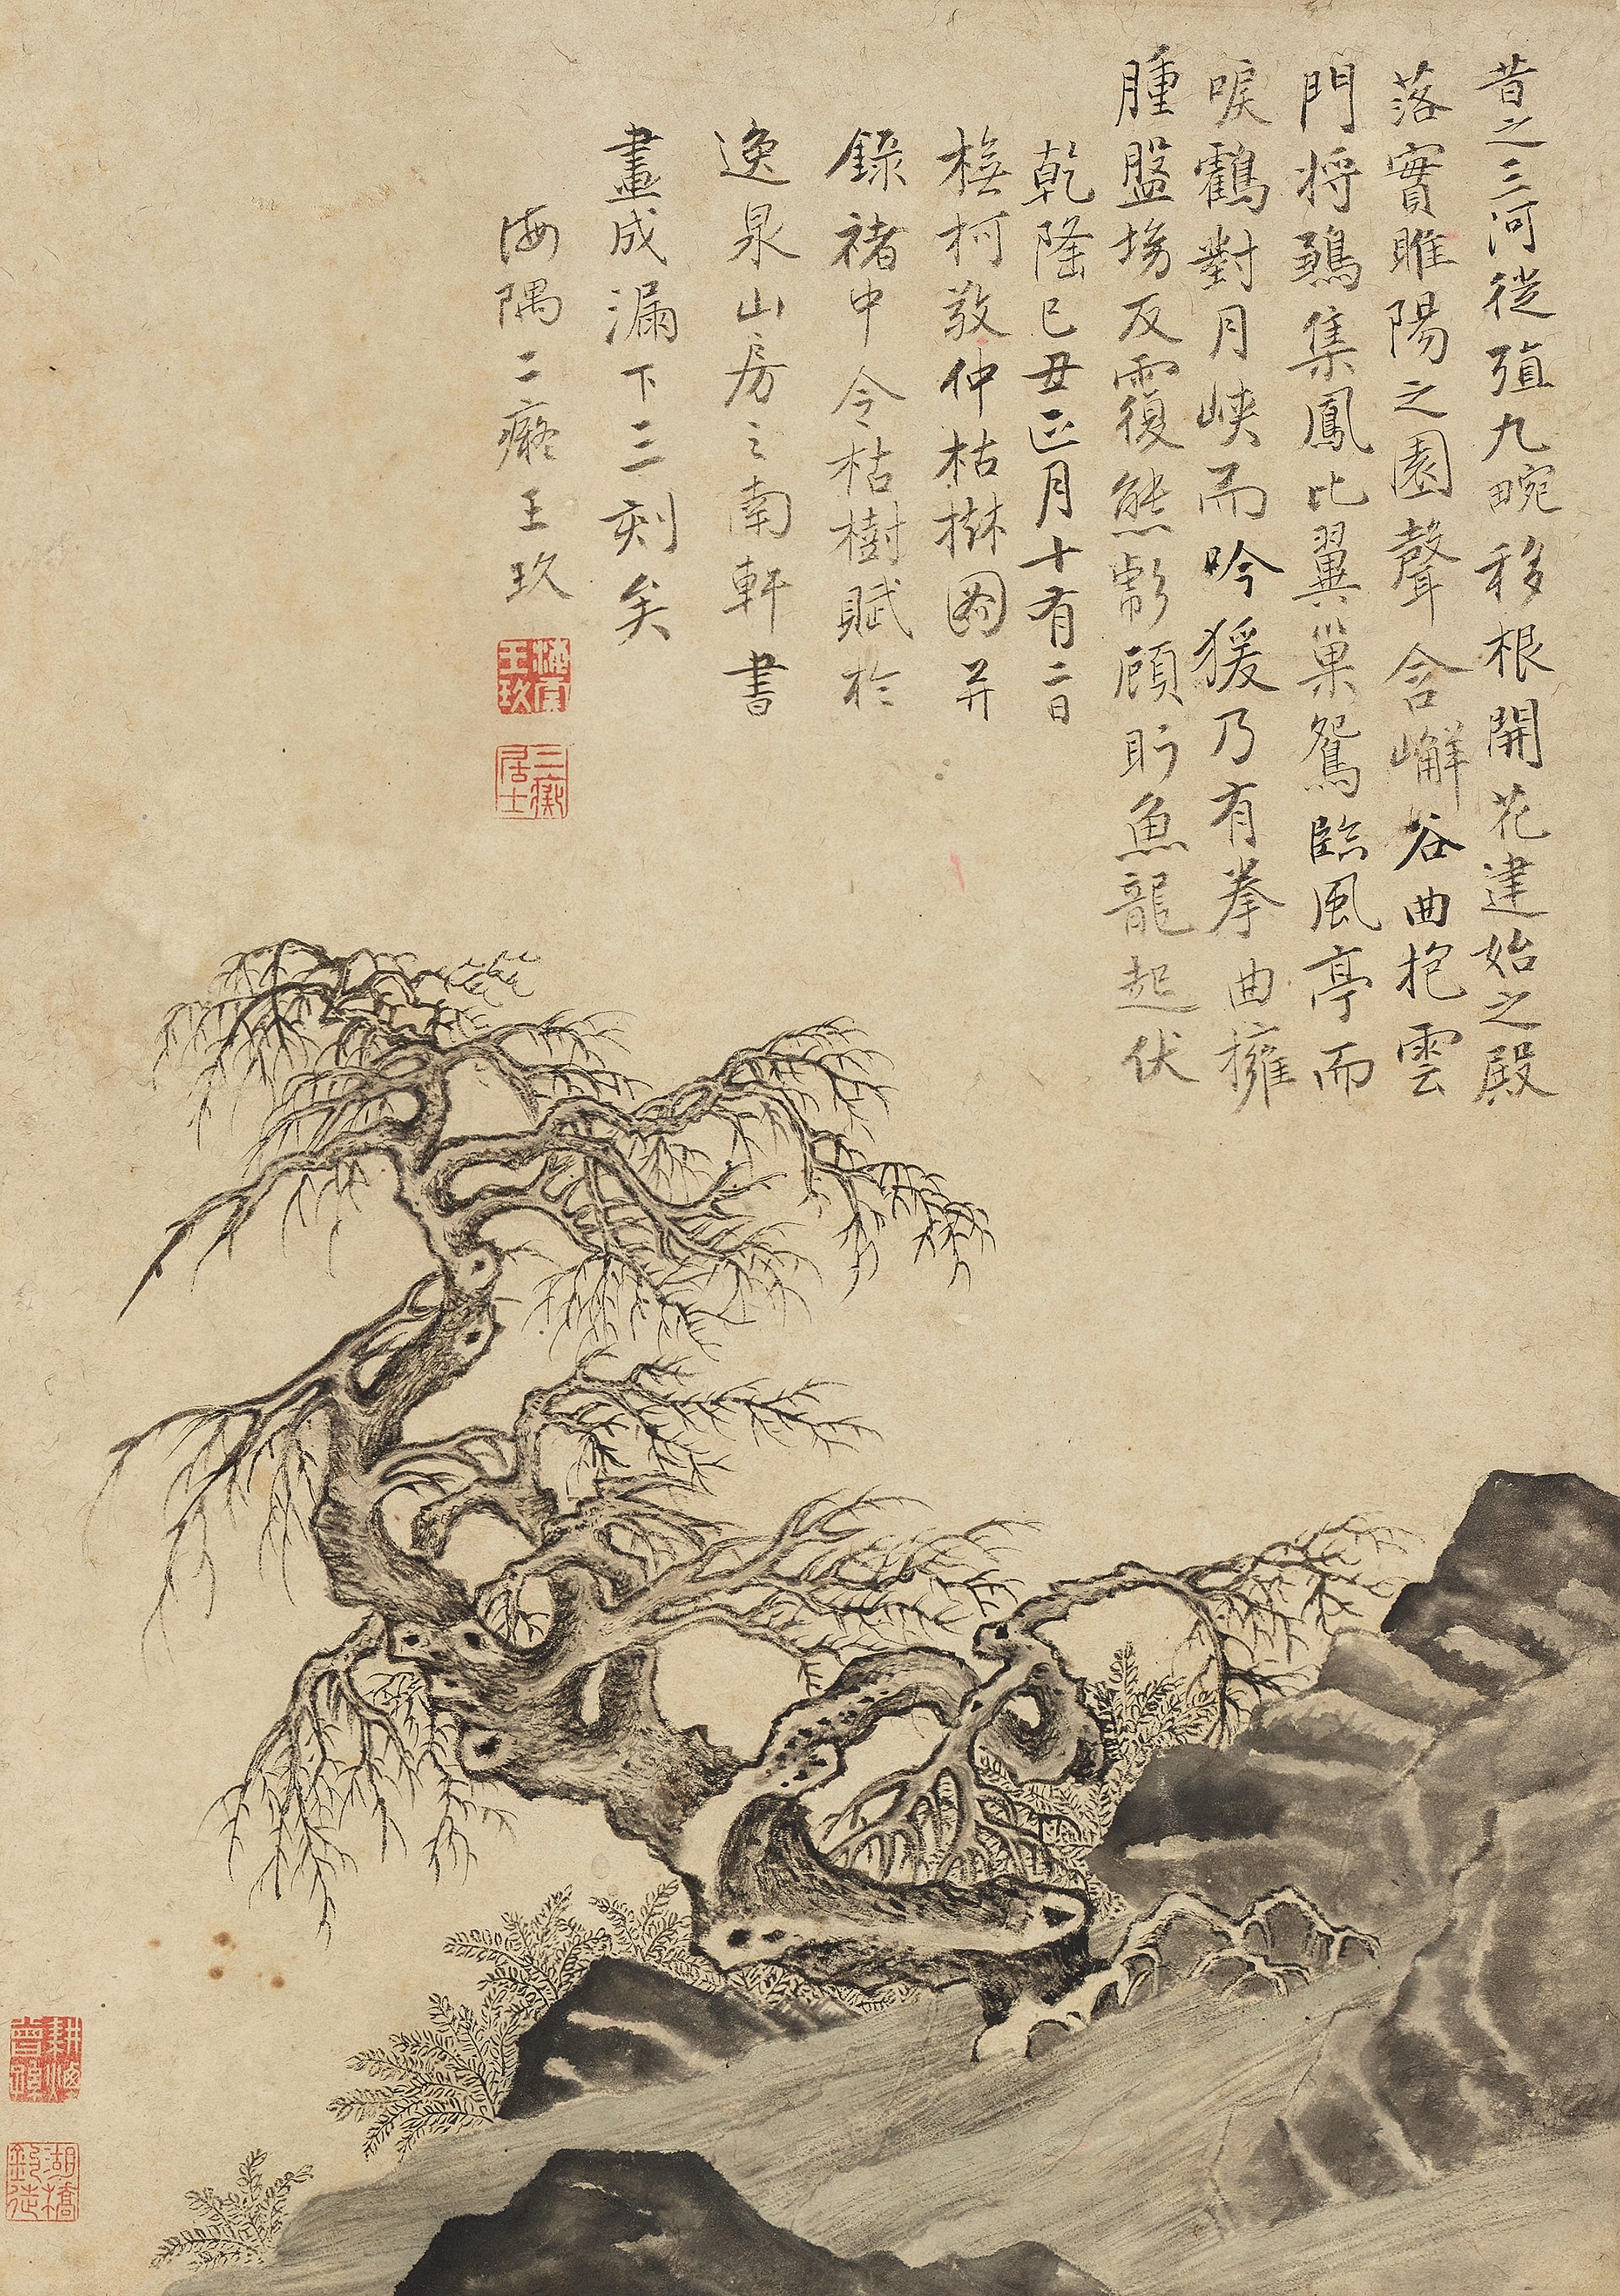 昔之三河徙殖九畹移根開花建始之殿
落實睢陽之園聲含嶰谷曲抱雲
門將鶵集鳳比翼巢鴛臨風亭而
唳鶴對月峽而吟猨乃有拳曲擁
腫盤坳反覆熊彪顧盻魚龍起伏
乾隆己丑正月十有二日
橅柯敬仲枯楙圖并
錄褚中令枯樹賦於
逸泉山房之南軒書
畫成漏下三刻矣
海隅二癡王玖
王玖
居士
耕煙曾孫
湖橋釣徒